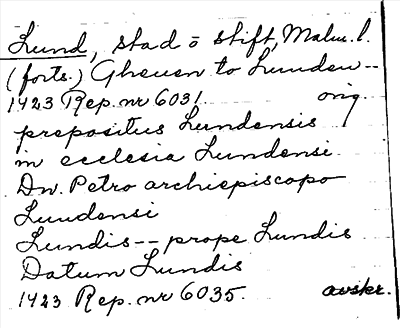 Lund, stad o stift, Malm. l.
(forts.) Gheuen to Lunden --
1423 Rep. nr 6031. orig.
prepositus Lundensis
in ecclesia Lundensi.
Dn. Petro archiepiscopo
Lundensi
Lundis -- prope Lundis
Datum Lundis
1423 Rep. nr 6035. avskr.